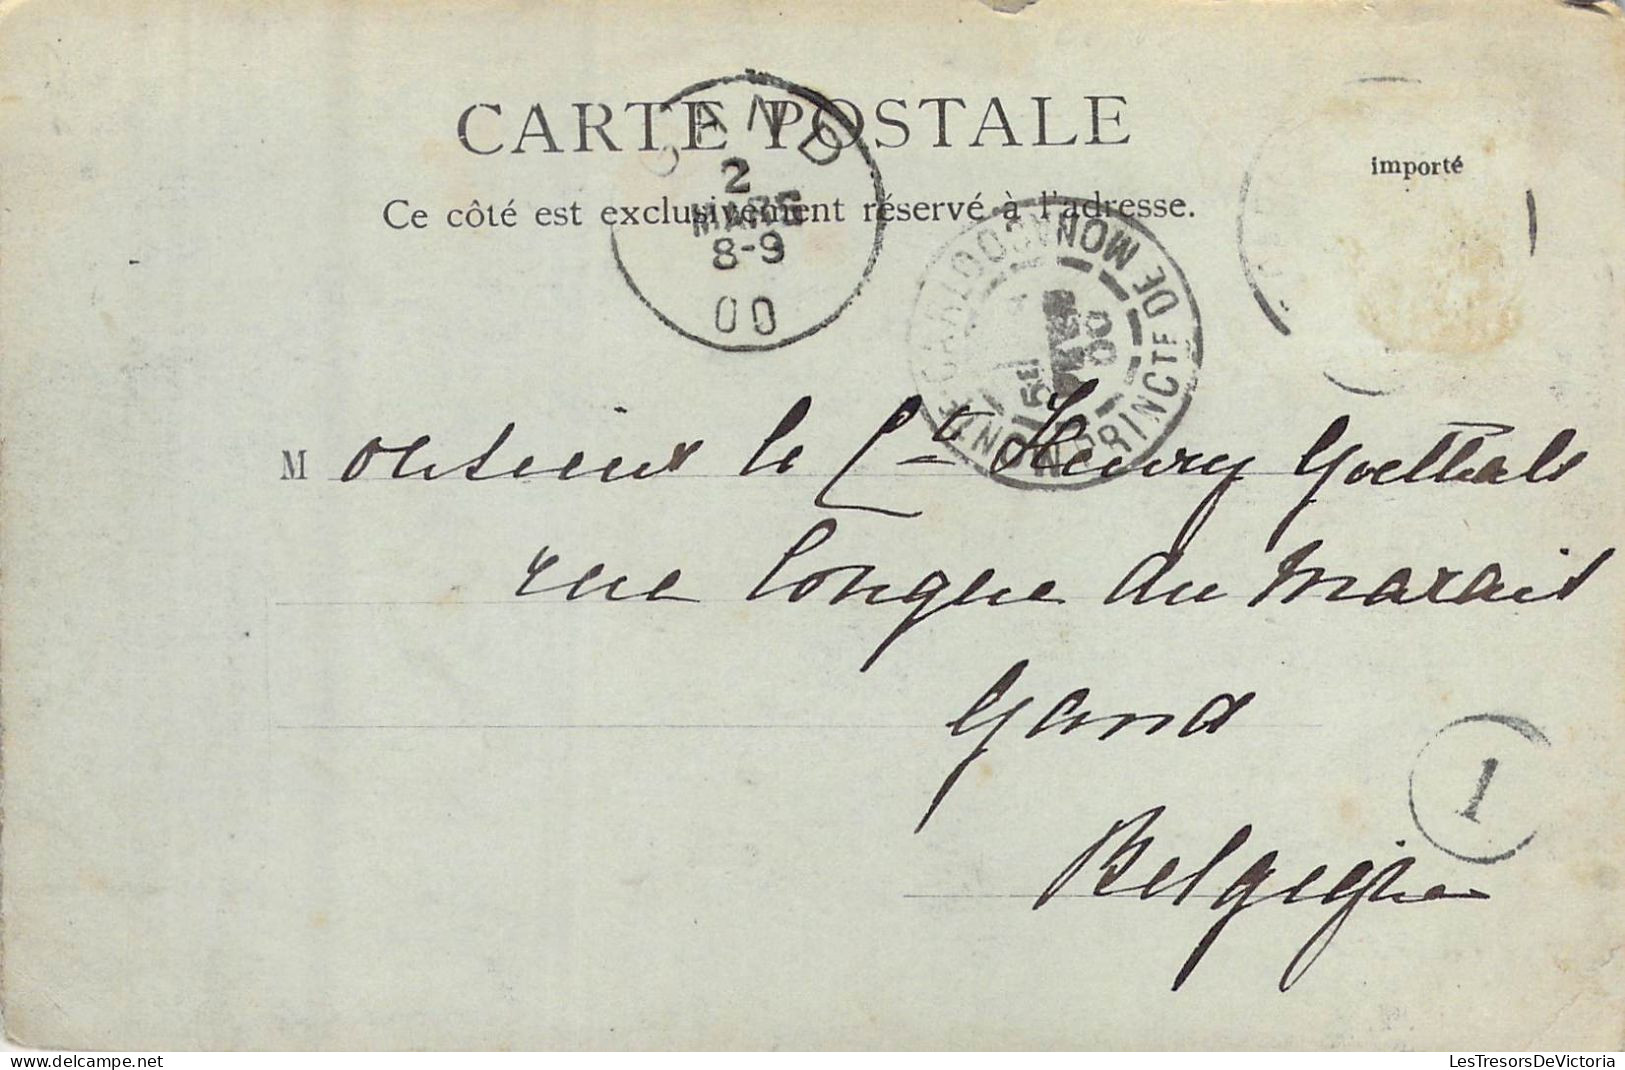 CARTE POSTALE
importé
Ce côté est exclusivement réservé à l'adresse.
GAND
2
MARS
8-9
00
MONTE CARLO PRINCTE DE MONACO
MARS
00
Monsieur le Cte Henry Goethals
rue longue du Marais
Gand
1
Belgique
LesTresorsDeVictoria